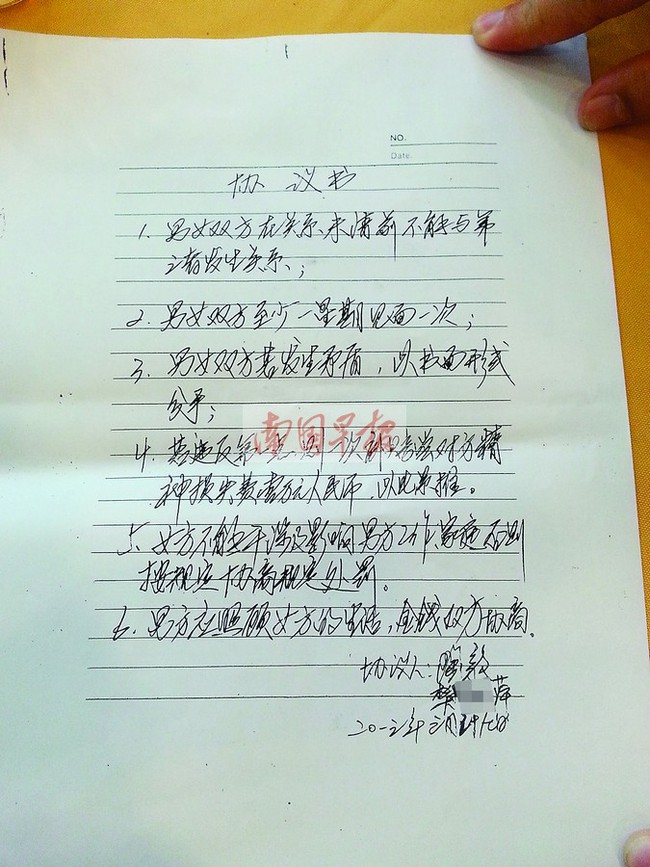 NO.
Date.
协 议 书
1. 男女双方在关系未清前不能与第
三者发生关系;
2. 男女双方至少一星期见面一次;
3. 男女双方若发生矛盾,以书面形式
分手;
南国早报
4. 若违反第一点,则一次补偿对方精
神损失费壹万元人民币,以此类推。
5. 女方不能干涉及影响男方工作、家庭否则
按规定协商规定处罚。
6. 男方应照顾女方的生活,金钱双方协商。
协议人:陶毅
樊 萍
二0一二年二月